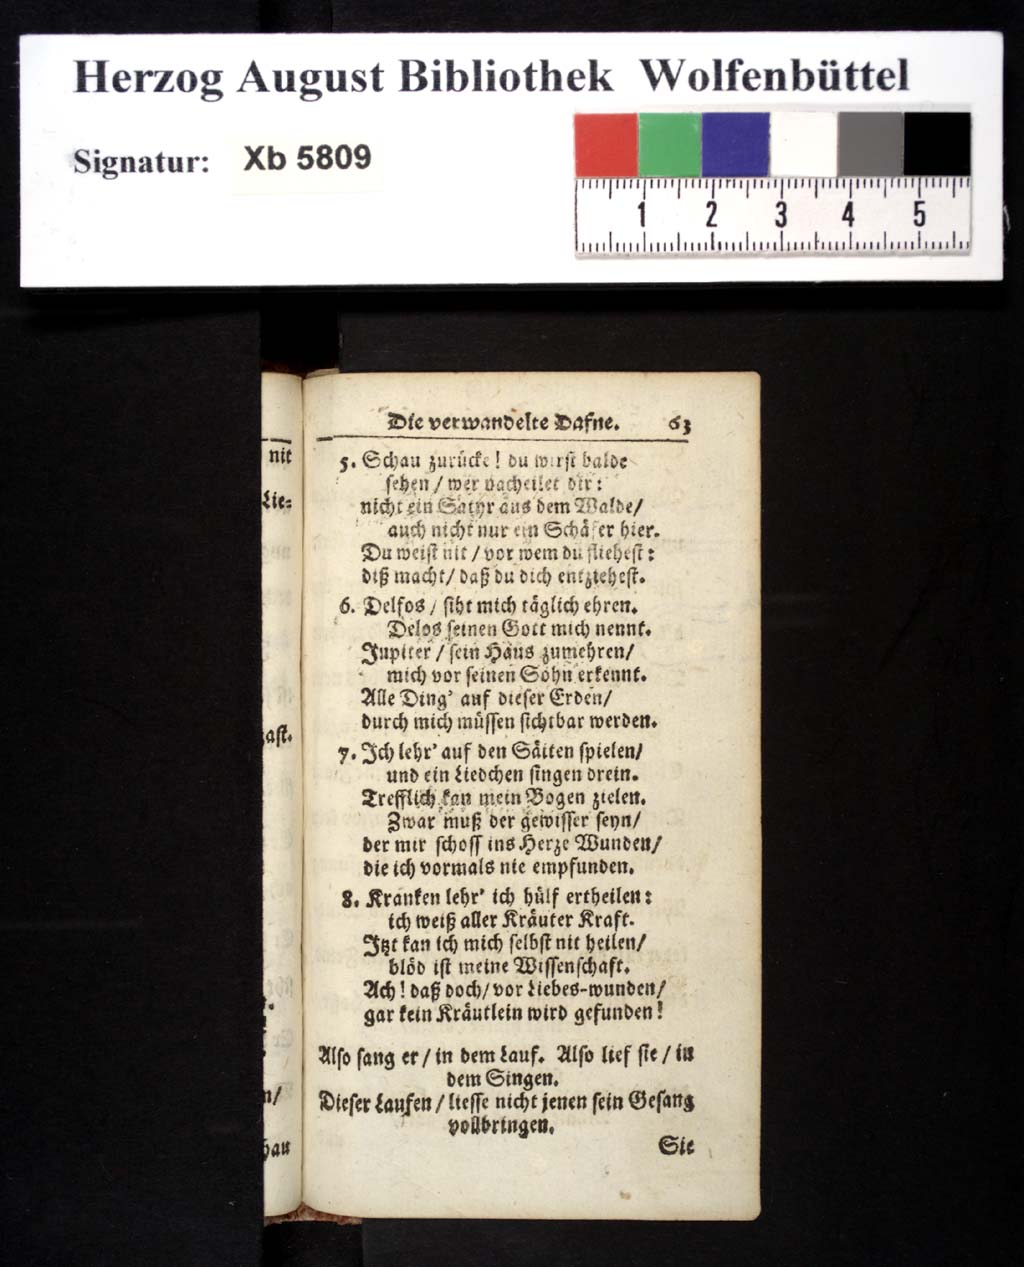 Herzog August Bibliothek Wolfenbüttel
Signatur: Xb 5809
1 2 3 4 5
nit
Lie-
ast.
n/
hau
Die verwandelte Dafne. 63
5. Schau zurücke! du wirst balde
sehen / wer nacheilet dir:
nicht ein Satyr aus dem Walde/
auch nicht nur ein Schäfer hier.
Du weist nit / vor wem du fliehest:
diß macht/ daß du dich entziehest.
6. Delfos / siht mich täglich ehren.
Delos seinen Gott mich nennt.
Jupiter / sein Haus zumehren/
mich vor seinen Sohn erkennt.
Alle Ding' auf dieser Erden/
durch mich müssen sichtbar werden.
7. Ich lehr' auf den Säiten spielen/
und ein Liedchen singen drein.
Trefflich kan mein Bogen zielen.
Zwar muß der gewisser seyn/
der mir schoss ins Herze Wunden/
die ich vormals nie empfunden.
8. Kranken lehr' ich hülf ertheilen:
ich weiß aller Kräuter Kraft.
Itzt kan ich mich selbst nit heilen/
blöd ist meine Wissenschaft.
Ach! daß doch/ vor Liebes-wunden/
gar kein Kräutlein wird gefunden!
Also sang er / in dem Lauf. Also lief sie / in
dem Singen.
Dieser Laufen / liesse nicht jenen sein Gesang
vollbringen.
Sie